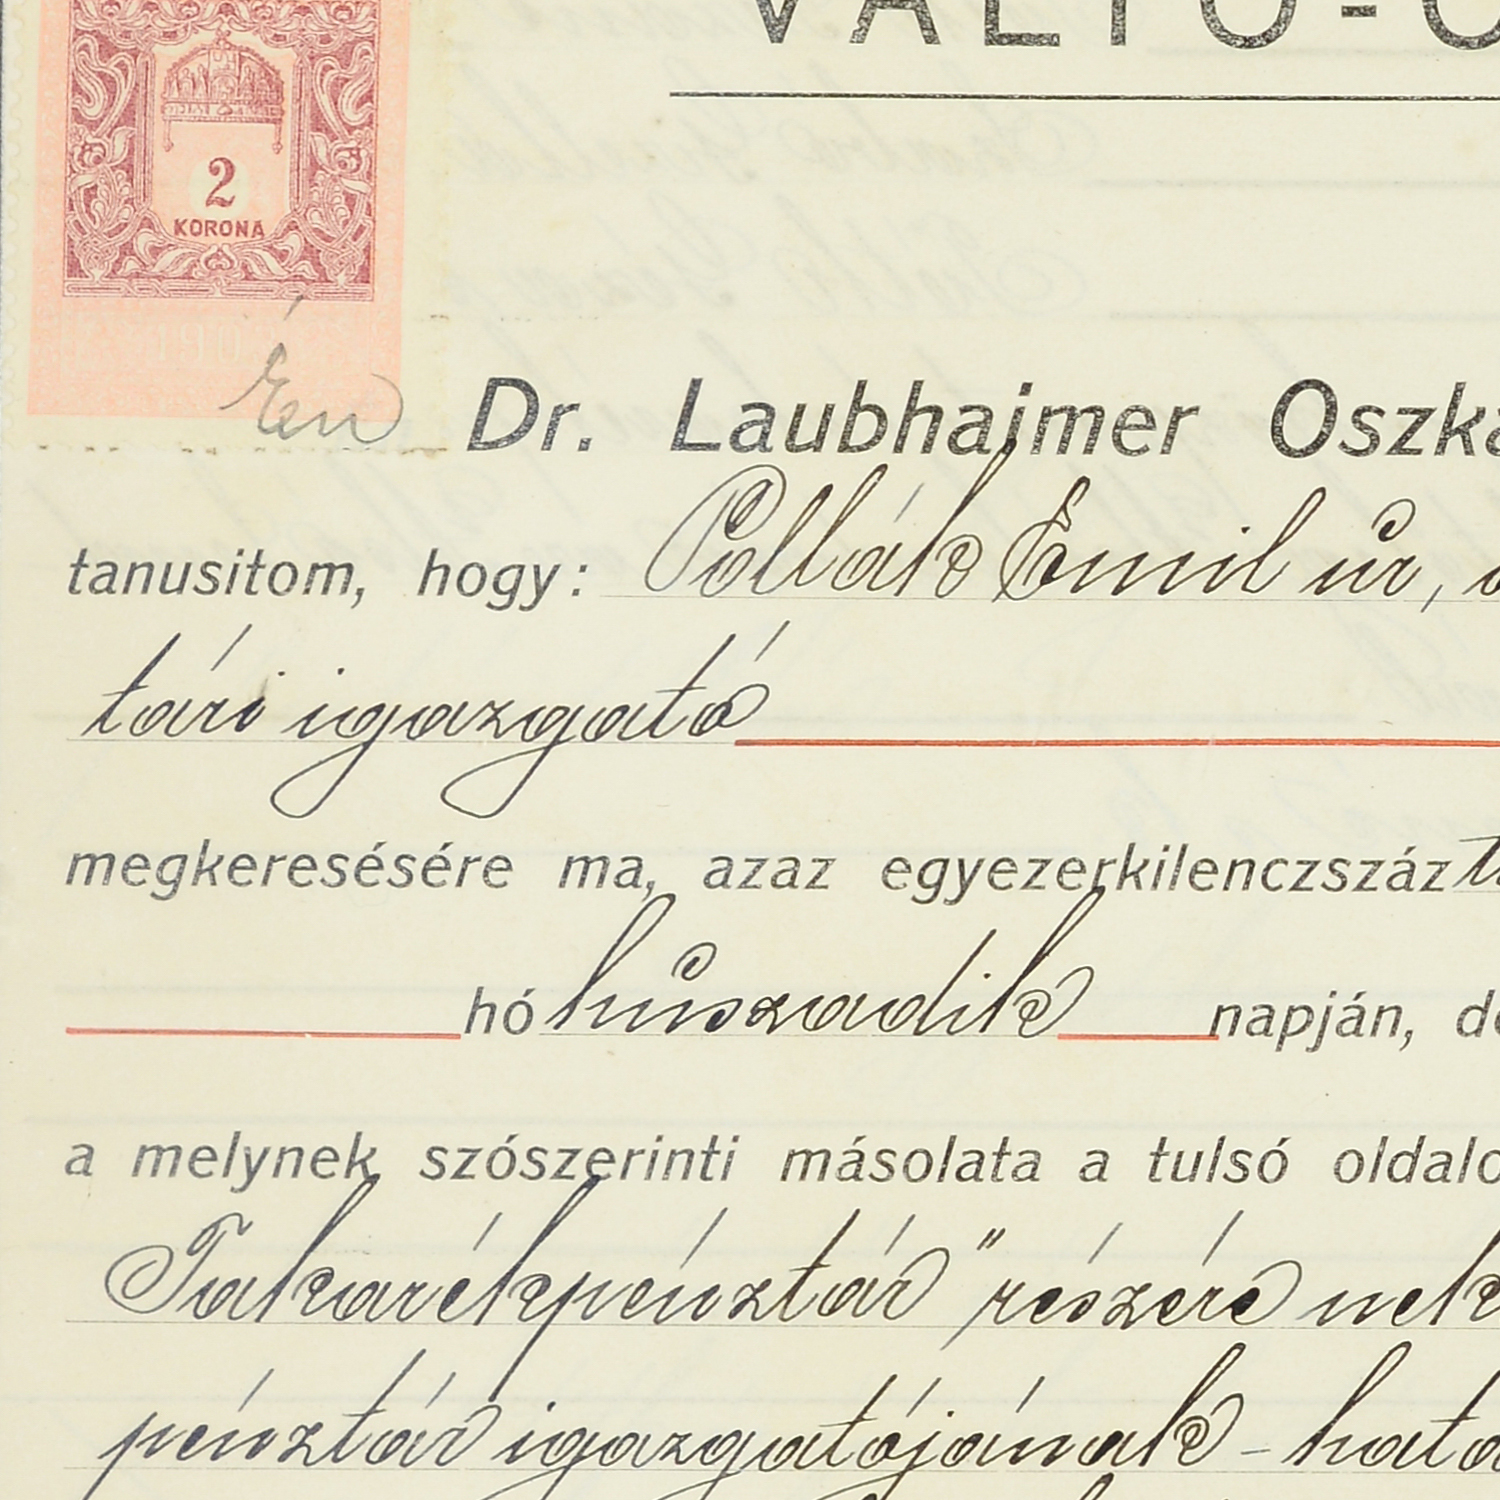 VÁLTÓ-Ó
2
KORONA
190
Én Dr. Laubhaimer Oszká
tanusitom, hogy: Pollák Emil úr,
tári igazgató
megkeresésére ma, azaz egyezerkilenczszáz
hó húszadik napján, dé
a melynek szószerinti másolata a tulsó oldalo
Takarékpénztár" részére nek
pénztár igazgatójának - hata